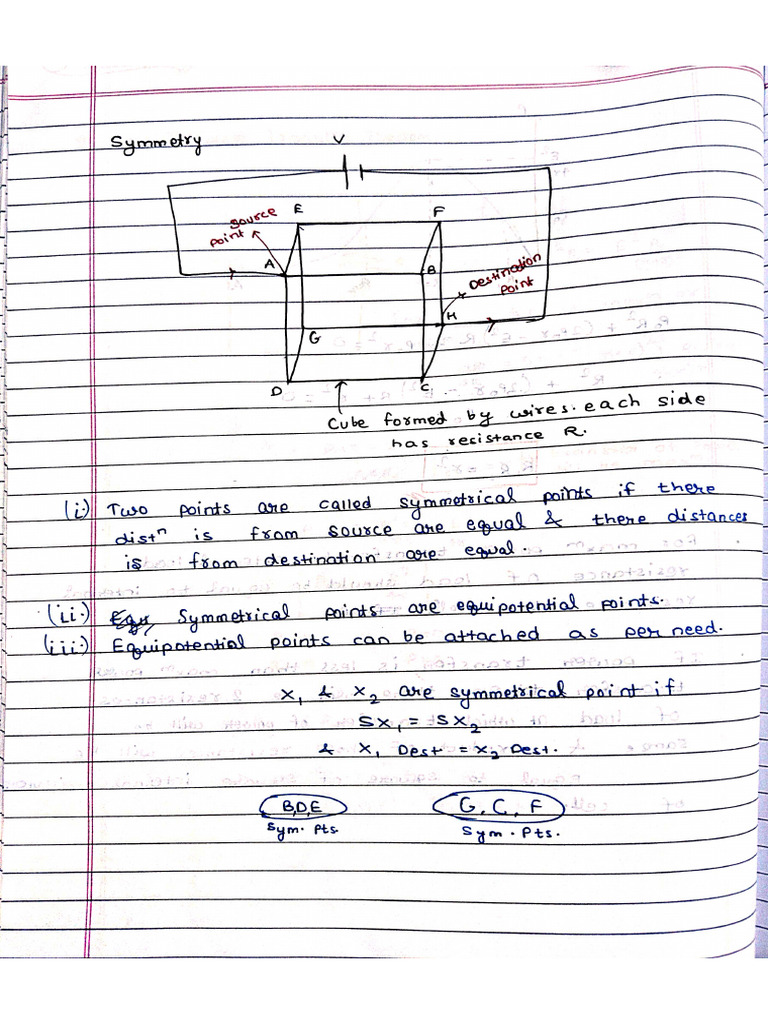 Symmetry
V
E
F
source
point
A
B
Destination
point
H
G
D
C
Cube formed by wires. each side
has resistance R.
(i) Two points are called symmetrical points if there
distⁿ is from source are equal & there distances
is from destination are equal.
(ii.) Symmetrical points are equipotential points.
(iii:) Equipotential points can be attached as per need.
X₁ & X₂ are symmetrical point if
SX₁ = SX₂
& X₁ Dest = X₂ Dest.
B,D,E
G, C, F
Sym. Pts.
Sym. Pts.